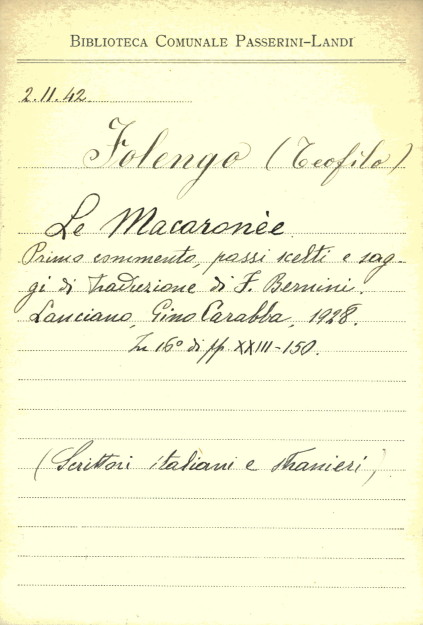 BIBLIOTECA COMUNALE PASSERINI-LANDI
2.11.42.
Folengo (Teofilo)
Le Macaronèe
Primo commento, passi scelti e sag-
gi di traduzione di F. Bernini.
Lanciano, Gino Carabba, 1928.
In 16° di pp XXIII-150.
(Scrittori italiani e stranieri)